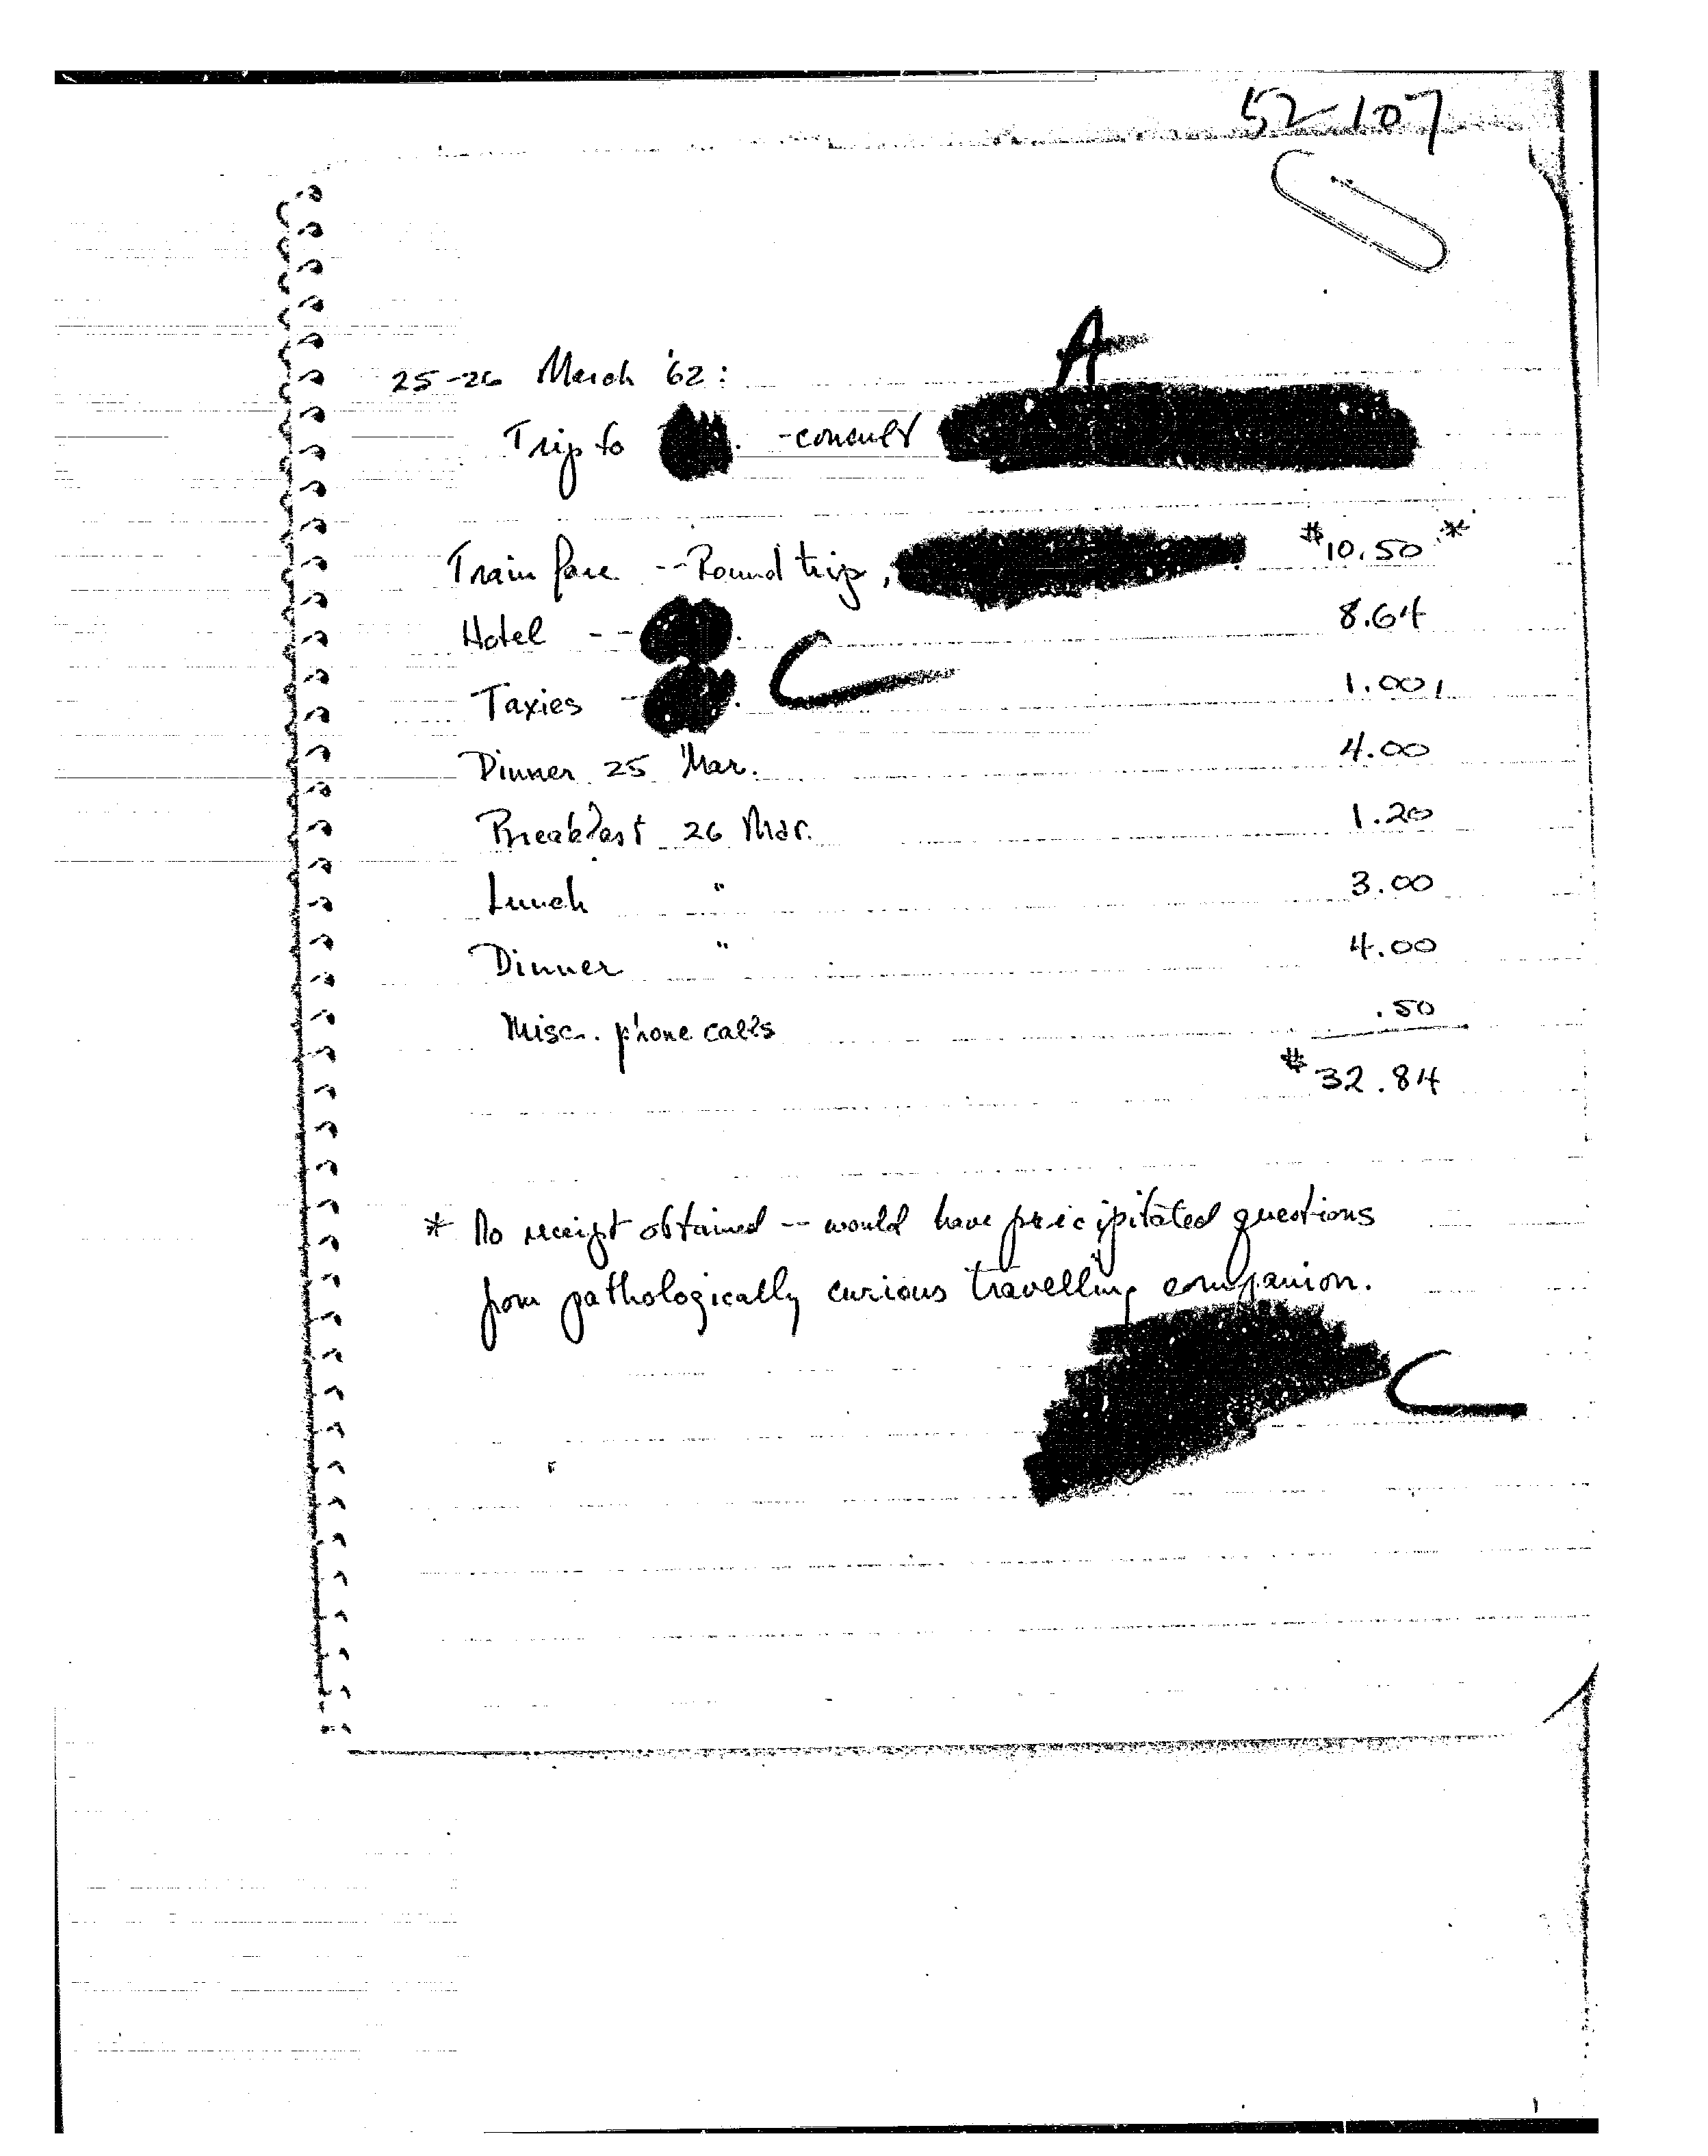 52-107
A
25-26 March '62:
Trip to . - consult
Train fare -- Round trip, $10.50 *
Hotel -- . 8.64
C
Taxies - . 1.00
Dinner 25 Mar. 4.00
Breakfast 26 Mar. 1.20
Lunch " 3.00
Dinner " 4.00
Misc. phone calls .50
$32.84
* No receipt obtained -- would have precipitated questions
from pathologically curious travelling companion.
C